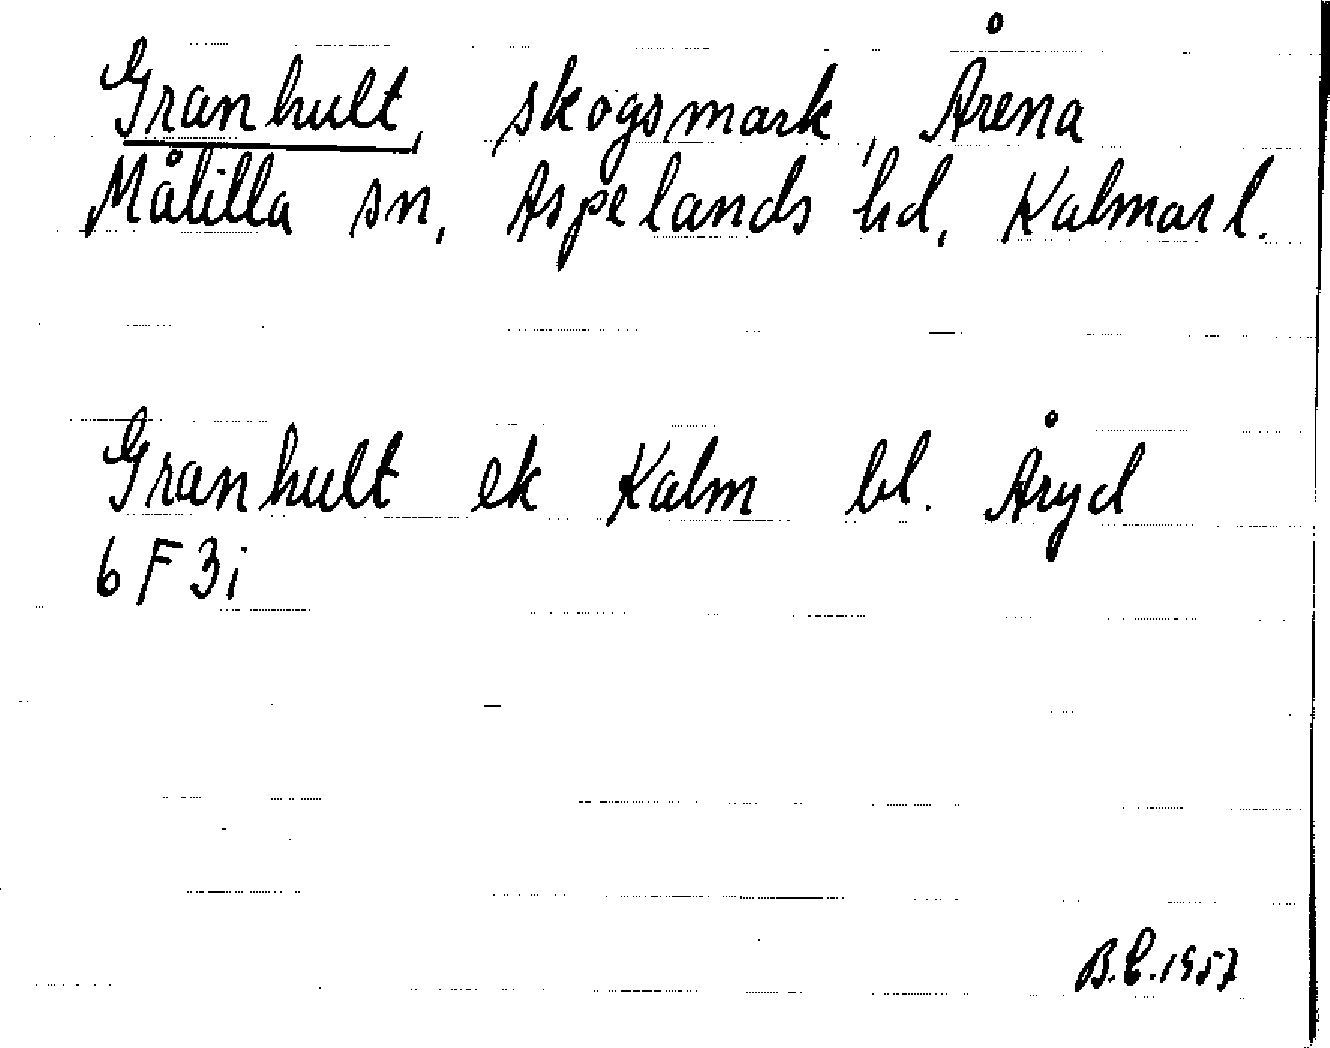 Granhult, skogsmark, Årena
Målilla sn, Aspelands hd, Kalmar l.
Granhult ek Kalm bl. Åryd
6 F 3 i
B.E. 1957